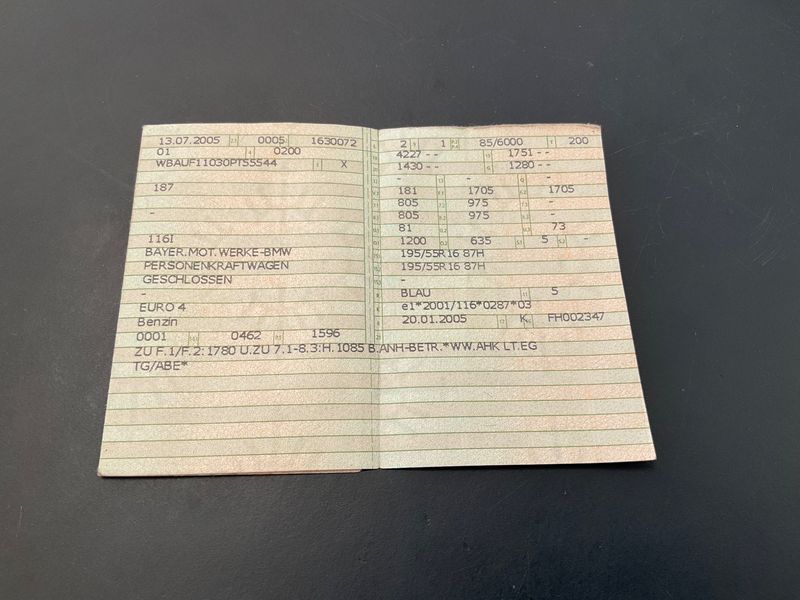 13.07.2005 0005 1630072
01 0200
WBAUF11030PT55544 X
187
-
116I
BAYER.MOT.WERKE-BMW
PERSONENKRAFTWAGEN
GESCHLOSSEN
-
EURO 4
Benzin
0001 0462 1596
2 1 85/6000 200
4227 -- 1751 --
1430 -- 1280 --
- - -
181 1705 1705
805 975 -
805 975 -
81 73
1200 635 5 -
195/55R16 87H
195/55R16 87H
-
BLAU 5
e1*2001/116*0287*03
20.01.2005 K FH002347
ZU F.1/F.2:1780 U.ZU 7.1-8.3:H.1085 B.ANH-BETR.*WW.AHK LT.EG
TG/ABE*